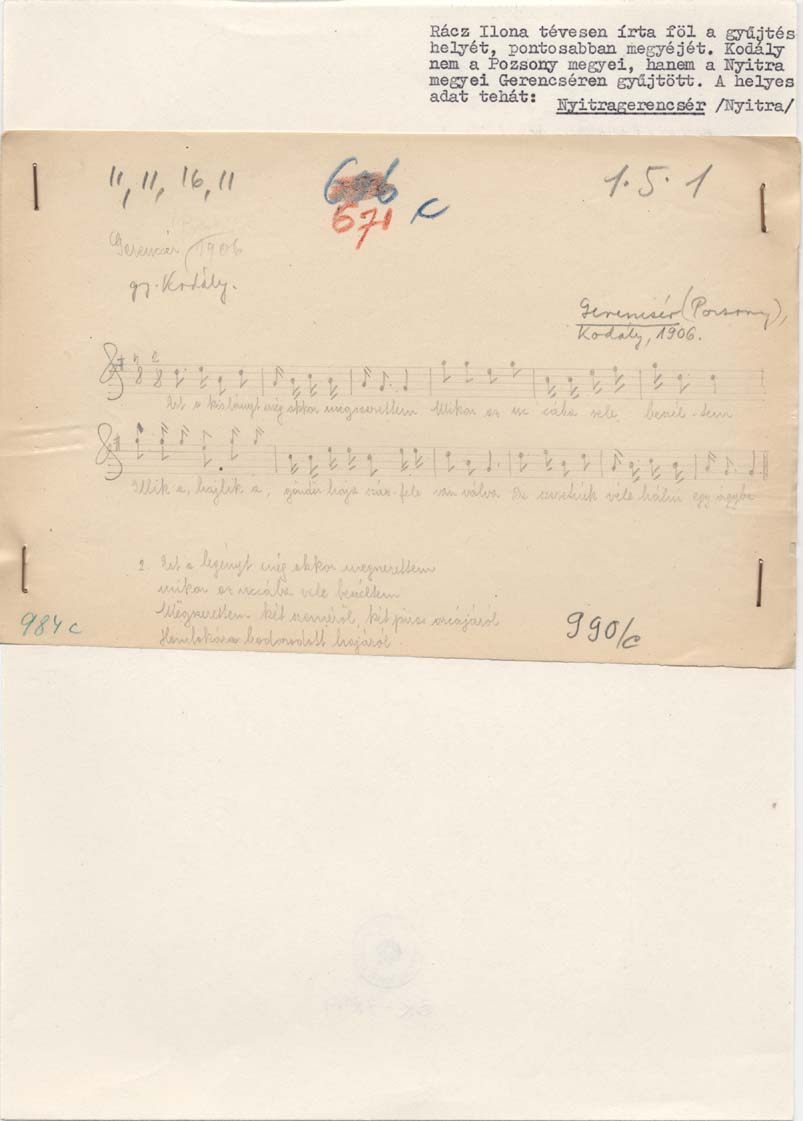 Rácz Ilona tévesen írta föl a gyűjtés
helyét, pontosabban megyéjét. Kodály
nem a Pozsony megyei, hanem a Nyitra
megyei Gerencséren gyűjtött. A helyes
adat tehát: Nyitragerencsér /Nyitra/
11, 11, 16, 11
671 c
1.5.1
Gerencsér 1906
gy. Kodály.
Gerencsér (Pozsony),
Kodály, 1906.
Ezt a kislányt még akkor megszerettem Mikor az uccába vele beszél-tem
Illik a, hajlik a, göndör haja száz-fele van válva De szeretnék véle hálni egy ágyba
2. Ezt a legényt még akkor megszerettem
mikor az uccába vele beszéltem
Megszerettem két szeméről, két piros orcájáról
Homlokára bodorodott hajáról
984 c
990/c